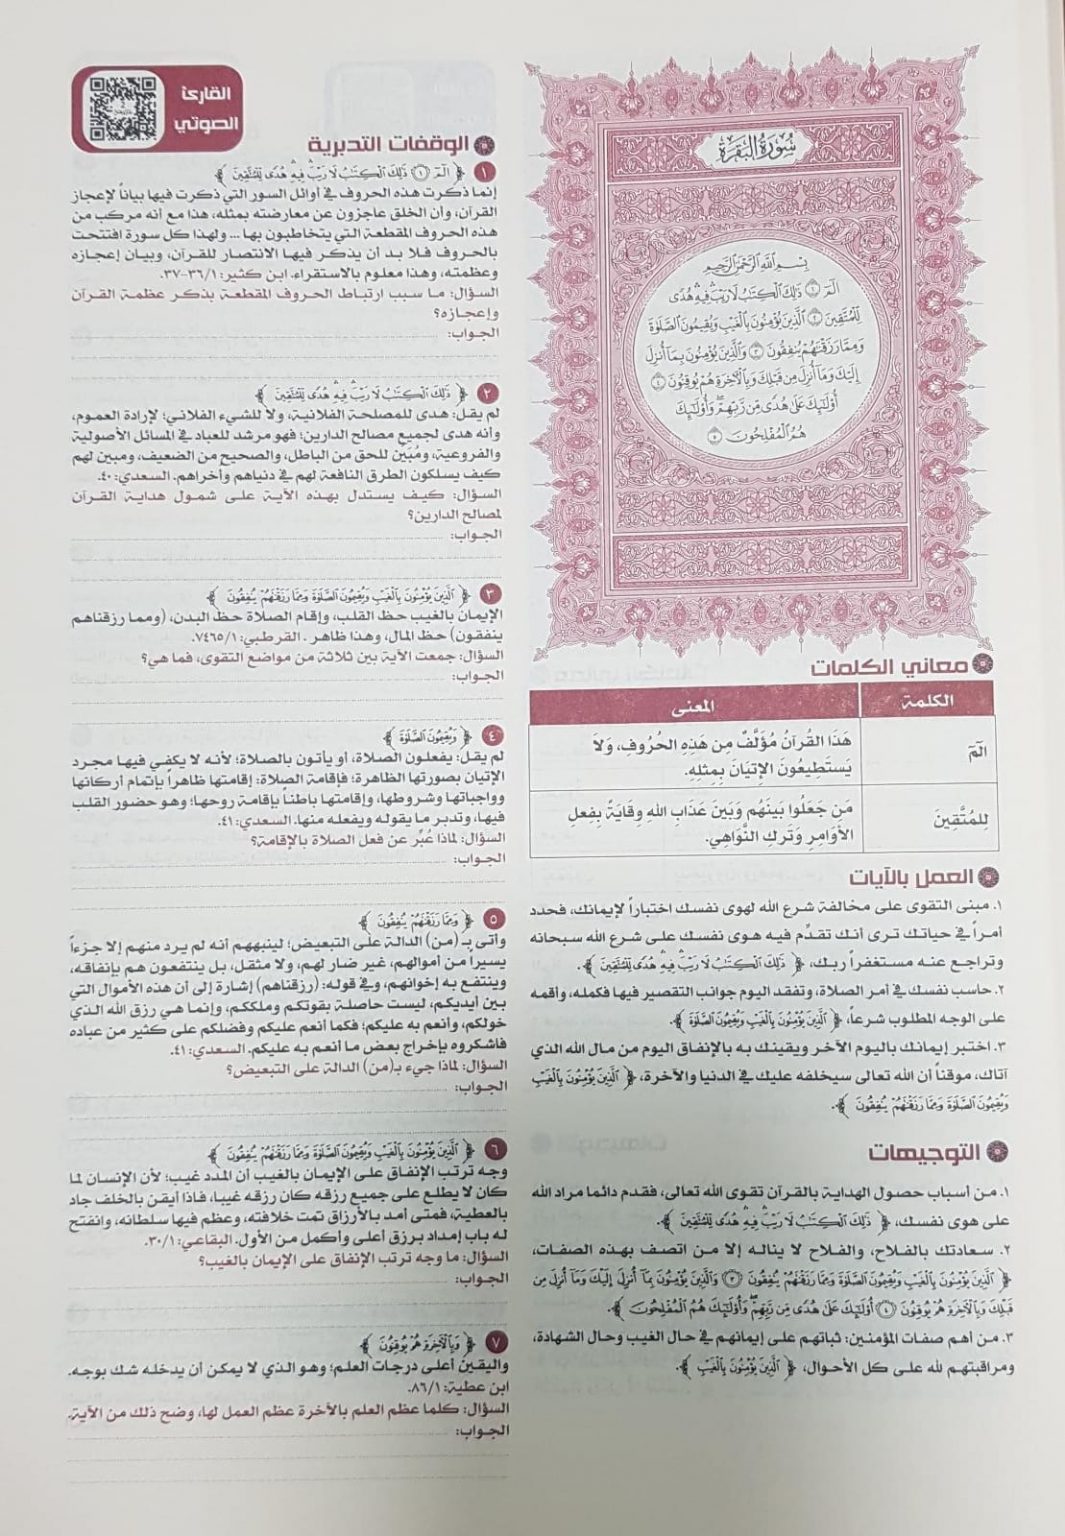 سُورَةُ البَقَرَةِ
بِسْمِ اللَّهِ الرَّحْمَٰنِ الرَّحِيمِ
الٓمٓ ﴿١﴾ ذَٰلِكَ الْكِتَابُ لَا رَيْبَ ۛ فِيهِ ۛ هُدًى
لِّلْمُتَّقِينَ ﴿٢﴾ الَّذِينَ يُؤْمِنُونَ بِالْغَيْبِ وَيُقِيمُونَ الصَّلَوٰةَ
وَمِمَّا رَزَقْنَٰهُمْ يُنفِقُونَ ﴿٣﴾ وَالَّذِينَ يُؤْمِنُونَ بِمَآ أُنزِلَ
إِلَيْكَ وَمَآ أُنزِلَ مِن قَبْلِكَ وَبِالْءَاخِرَةِ هُمْ يُوقِنُونَ ﴿٤﴾
أُو۟لَٰٓئِكَ عَلَىٰ هُدًى مِّن رَّبِّهِمْ ۖ وَأُو۟لَٰٓئِكَ
هُمُ الْمُفْلِحُونَ ﴿٥﴾
معاني الكلمات
الكلمة المعنى
الٓمٓ هَذَا القُرآنُ مُؤَلَّفٌ مِن هَذِهِ الحُرُوفِ، وَلاَ
يَستَطِيعُونَ الإِتيَانَ بِمِثلِهِ.
لِلمُتَّقِينَ مَن جَعَلُوا بَينَهُم وَبَينَ عَذَابِ اللهِ وِقَايَةً بِفِعلِ
الأَوَامِرِ وَتَركِ النَّوَاهِي.
العمل بالآيات
١. مبنى التقوى على مخالفة شرع الله لهوى نفسك اختباراً لإيمانك، فحدد
أمراً في حياتك ترى أنك تقدِّم فيه هوى نفسك على شرع الله سبحانه
وتراجع عنه مستغفراً ربك، ﴿ ذَٰلِكَ الْكِتَٰبُ لَا رَيْبَ ۛ فِيهِ ۛ هُدًى لِّلْمُتَّقِينَ ﴾.
٢. حاسب نفسك في أمر الصلاة، وتفقد اليوم جوانب التقصير فيها فكمله، وأقمه
على الوجه المطلوب شرعاً، ﴿ الَّذِينَ يُؤْمِنُونَ بِالْغَيْبِ وَيُقِيمُونَ الصَّلَوٰةَ ﴾.
٣. اختبر إيمانك باليوم الآخر ويقينك به بالإنفاق اليوم من مال الله الذي
آتاك، موقناً أن الله تعالى سيخلفه عليك في الدنيا والآخرة، ﴿ الَّذِينَ يُؤْمِنُونَ بِالْغَيْبِ
وَيُقِيمُونَ الصَّلَوٰةَ وَمِمَّا رَزَقْنَٰهُمْ يُنفِقُونَ ﴾.
التوجيهات
١. من أسباب حصول الهداية بالقرآن تقوى الله تعالى، فقدم دائما مراد الله
على هوى نفسك، ﴿ ذَٰلِكَ الْكِتَٰبُ لَا رَيْبَ ۛ فِيهِ ۛ هُدًى لِّلْمُتَّقِينَ ﴾.
٢. سعادتك بالفلاح، والفلاح لا يناله إلا من اتصف بهذه الصفات،
﴿ الَّذِينَ يُؤْمِنُونَ بِالْغَيْبِ وَيُقِيمُونَ الصَّلَوٰةَ وَمِمَّا رَزَقْنَٰهُمْ يُنفِقُونَ ﴿٣﴾ وَالَّذِينَ يُؤْمِنُونَ بِمَآ أُنزِلَ إِلَيْكَ وَمَآ أُنزِلَ مِن
قَبْلِكَ وَبِالْءَاخِرَةِ هُمْ يُوقِنُونَ ﴿٤﴾ أُو۟لَٰٓئِكَ عَلَىٰ هُدًى مِّن رَّبِّهِمْ ۖ وَأُو۟لَٰٓئِكَ هُمُ الْمُفْلِحُونَ ﴾.
٣. من أهم صفات المؤمنين: ثباتهم على إيمانهم في حال الغيب وحال الشهادة،
ومراقبتهم لله على كل الأحوال، ﴿ الَّذِينَ يُؤْمِنُونَ بِالْغَيْبِ ﴾.
القارئ
الصوتي
الوقفات التدبرية
١ ﴿ الٓمٓ ﴿١﴾ ذَٰلِكَ الْكِتَٰبُ لَا رَيْبَ ۛ فِيهِ ۛ هُدًى لِّلْمُتَّقِينَ ﴾
إنما ذكرت هذه الحروف في أوائل السور التي ذكرت فيها بياناً لإعجاز
القرآن، وأن الخلق عاجزون عن معارضته بمثله، هذا مع أنه مركب من
هذه الحروف المقطعة التي يتخاطبون بها ... ولهذا كل سورة افتتحت
بالحروف فلا بد أن يذكر فيها الانتصار للقرآن، وبيان إعجازه
وعظمته، وهذا معلوم بالاستقراء. ابن كثير: ٣٦/١-٣٧.
السؤال: ما سبب ارتباط الحروف المقطعة بذكر عظمة القرآن
وإعجازه؟
الجواب:
٢ ﴿ ذَٰلِكَ الْكِتَٰبُ لَا رَيْبَ ۛ فِيهِ ۛ هُدًى لِّلْمُتَّقِينَ ﴾
لم يقل: هدى للمصلحة الفلانية، ولا للشيء الفلاني؛ لإرادة العموم،
وأنه هدى لجميع مصالح الدارين؛ فهو مرشد للعباد في المسائل الأصولية
والفروعية، ومُبَيِّن للحق من الباطل، والصحيح من الضعيف، ومبين لهم
كيف يسلكون الطرق النافعة لهم في دنياهم وأخراهم. السعدي: ٤٠.
السؤال: كيف يستدل بهذه الآية على شمول هداية القرآن
لمصالح الدارين؟
الجواب:
٣ ﴿ الَّذِينَ يُؤْمِنُونَ بِالْغَيْبِ وَيُقِيمُونَ الصَّلَوٰةَ وَمِمَّا رَزَقْنَٰهُمْ يُنفِقُونَ ﴾
الإيمان بالغيب حظ القلب، وإقام الصلاة حظ البدن، (ومما رزقناهم
ينفقون) حظ المال، وهذا ظاهر. القرطبي: ٧٤٦٥/١.
السؤال: جمعت الآية بين ثلاثة من مواضع التقوى، فما هي؟
الجواب:
٤ ﴿ وَيُقِيمُونَ الصَّلَوٰةَ ﴾
لم يقل: يفعلون الصلاة، أو يأتون بالصلاة؛ لأنه لا يكفي فيها مجرد
الإتيان بصورتها الظاهرة؛ فإقامة الصلاة: إقامتها ظاهراً بإتمام أركانها
وواجباتها وشروطها، وإقامتها باطناً بإقامة روحها؛ وهو حضور القلب
فيها، وتدبر ما يقوله ويفعله منها. السعدي: ٤١.
السؤال: لماذا عُبِّر عن فعل الصلاة بالإقامة؟
الجواب:
٥ ﴿ وَمِمَّا رَزَقْنَٰهُمْ يُنفِقُونَ ﴾
وأتى بـ (من) الدالة على التبعيض؛ لينبههم أنه لم يرد منهم إلا جزءاً
يسيراً من أموالهم، غير ضار لهم، ولا مثقل، بل ينتفعون هم بإنفاقه،
وينتفع به إخوانهم، وفي قوله: (رزقناهم) إشارة إلى أن هذه الأموال التي
بين أيديكم، ليست حاصلة بقوتكم وملككم، وإنما هي رزق الله الذي
خولكم، وأنعم به عليكم؛ فكما أنعم عليكم وفضلكم على كثير من عباده
فاشكروه بإخراج بعض ما أنعم به عليكم. السعدي: ٤١.
السؤال: لماذا جيء بـ(من) الدالة على التبعيض؟
الجواب:
٦ ﴿ الَّذِينَ يُؤْمِنُونَ بِالْغَيْبِ وَيُقِيمُونَ الصَّلَوٰةَ وَمِمَّا رَزَقْنَٰهُمْ يُنفِقُونَ ﴾
وجه ترتب الإنفاق على الإيمان بالغيب أن المدد غيب؛ لأن الإنسان لما
كان لا يطلع على جميع رزقه كان رزقه غيبا، فاذا أيقن بالخلف جاد
بالعطية، فمتى أمد بالأرزاق تمت خلافته، وعظم فيها سلطانه، وانفتح
له باب إمداد برزق أعلى وأكمل من الأول. البقاعي: ٣٠/١.
السؤال: ما وجه ترتب الإنفاق على الإيمان بالغيب؟
الجواب:
٧ ﴿ وَبِالْءَاخِرَةِ هُمْ يُوقِنُونَ ﴾
واليقين أعلى درجات العلم؛ وهو الذي لا يمكن أن يدخله شك بوجه.
ابن عطية: ٨٦/١.
السؤال: كلما عظم العلم بالآخرة عظم العمل لها، وضح ذلك من الآية.
الجواب: